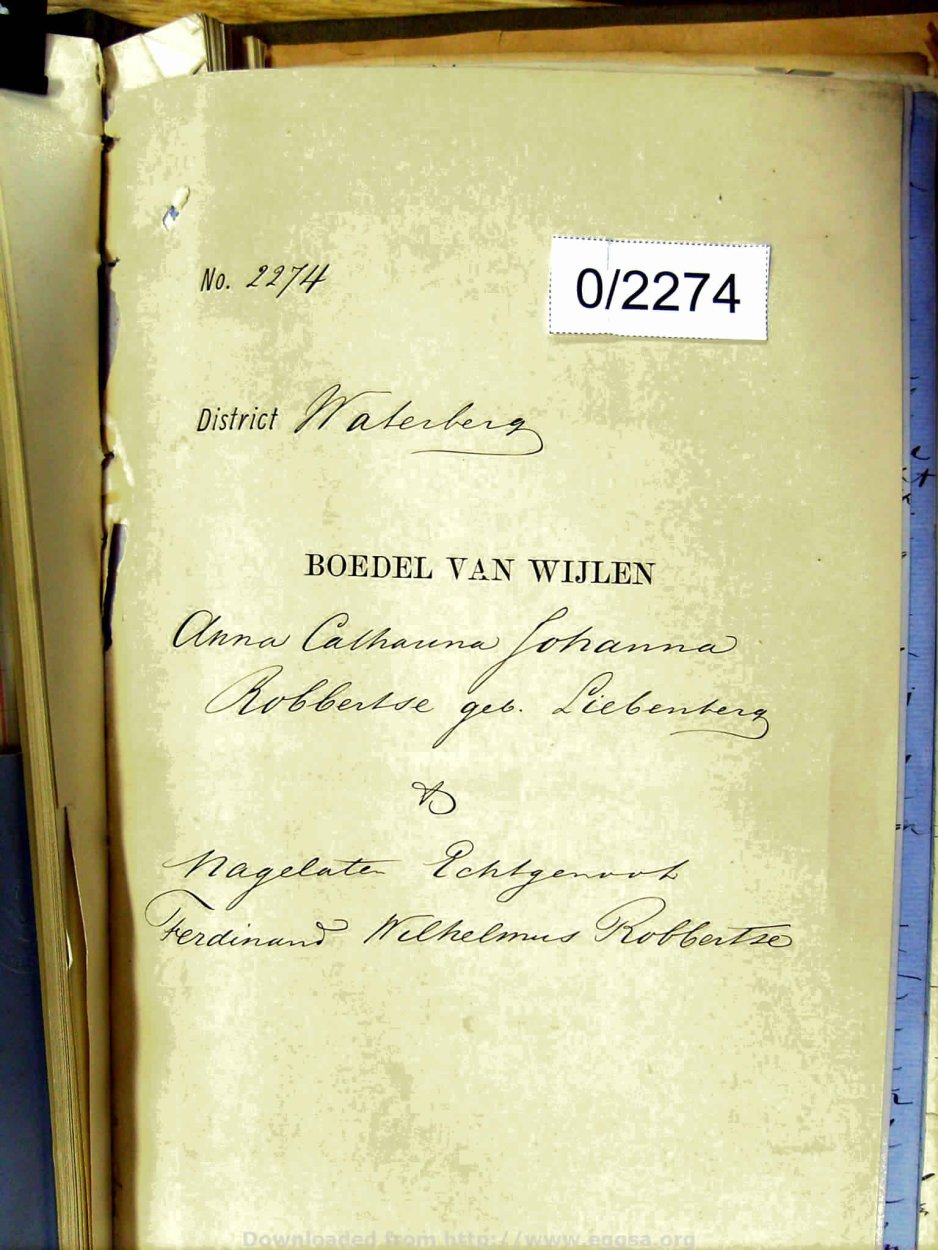 No. 2274
0/2274
District Waterberg
BOEDEL VAN WIJLEN
Anna Catharina Johanna
Robbertse geb. Liebenberg
&
Nagelaten Echtgenoot
Ferdinand Wilhelmus Robbertse
Downloaded from http://www.eggsa.org